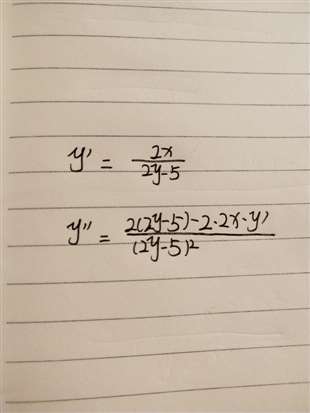 y' = 2x / 2y-5
y'' = 2(2y-5)-2·2x·y' / (2y-5)²